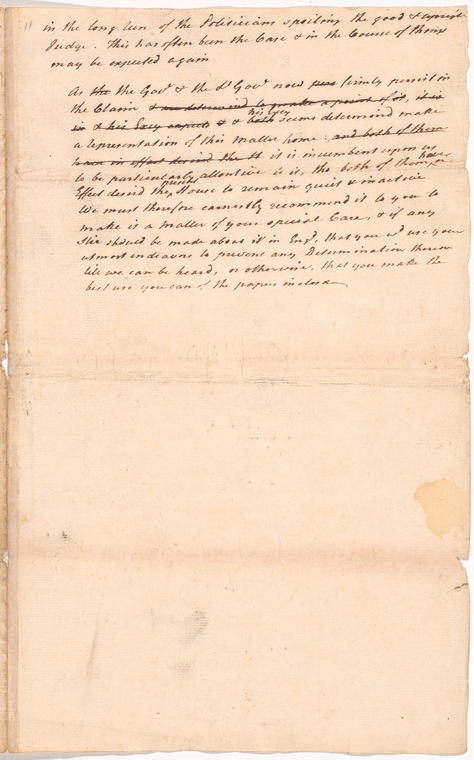 11
in the long run of the Politicians spoiling the good & upright
Judge. This has often been the Case & in the Course of things
may be expected again
As the Govr & the Lt Govr now firmly persist in
the Claim & are determind to make a point of it, it is
& his Excy expects & & both his Excy seems determind make
a representation of this matter home, and both of them
have in effect desired the H it is incumbent upon us
to be particularly attentive to it, tho both of them have in
Effect desird this present House to remain quiet & inactive
We must therefore earnestly recommend it to you to
make it a matter of your special Care, & if any
Stir should be made about it in Engd, that you wd use your
utmost endeavors to prevent any Determination thereon
till we can be heard, or otherwise, that you make the
best use you can of the papers inclosd